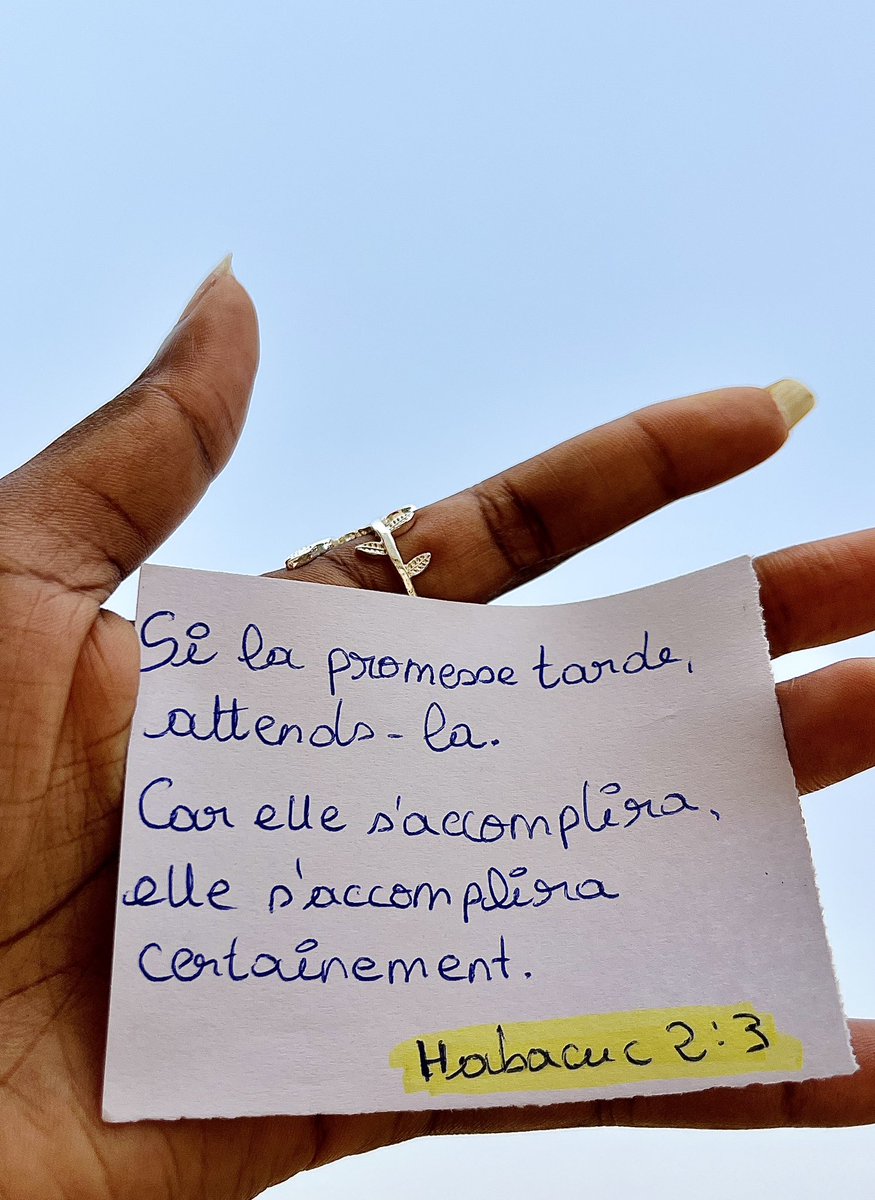 Si la promesse tarde,
attends-la.
Car elle s'accomplira,
elle s'accomplira
certainement.
Habacuc 2:3